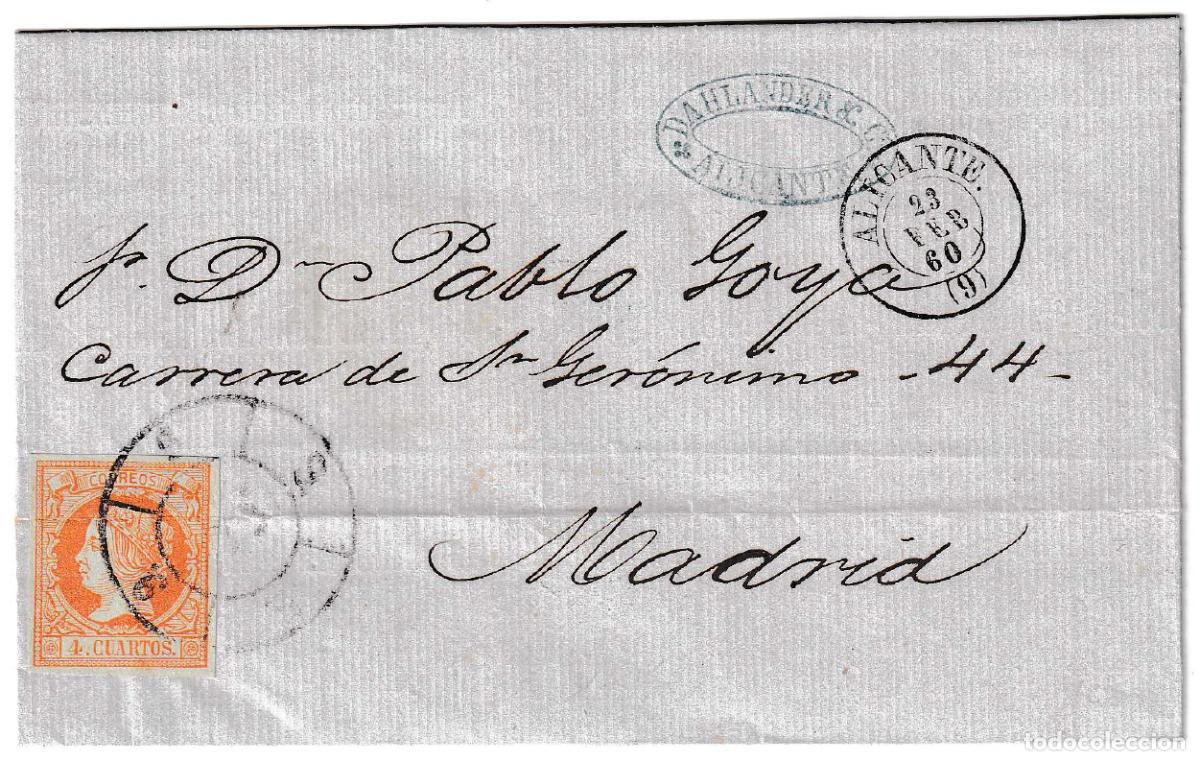 DAHLANDER & C
ALICANTE
ALICANTE.
23
FEB
60
(9)
p. Dn Pablo Goya
Carrera de Sn Gerónimo - 44 -
CORREOS
4. CUARTOS.
Madrid
todocoleccion